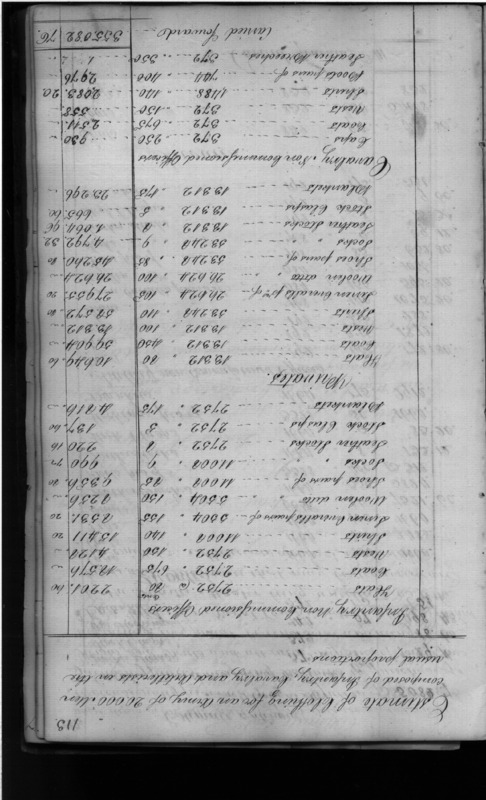 113
Estimate of Clothing for an Army of 20.000 Men
composed of Infantry, Cavalry and Artillerists in the
usual proportions
Infantry, Non Commissioned Officers
Hats 2752 @ 80 2201. 60
Coats 2752 " 675 18,576
Vests 2752 " 150 4128
Shirts 11008 " 140 15,411 20
Linen Overalls pairs of 5504 " 155 8531. 20
Woolen ditto 5504 " 150 8256
Shoes pairs of 11008 " 85 9356. 80
Socks " " 11008 " 9 990 72
Leather Stocks 2752 " 8 220 16
Stock Clasps 2752 " 5 137. 60
Blankets 2752 " 175 4816
Privates.
Hats 13312 " 80 10,649 60
Coats 13312 " 450 59904
Vests 13312 " 100 13,312
Shirts 53248 " 110 58,572 80
Linen Overalls prs of 26,624 " 105 27955. 20
Woolen ditto 26,624 " 100 26,624
Shoes pairs of 53,248 " 85 45,260 80
Socks " " 53,248 " 9 4,792 32
Leather Stocks 13312 " 8 1,064 96
Stock Clasps 13312 " 5 665. 60
Blankets 13312 " 175 23,296
Cavalry, Non Commissioned Officers
Caps 372 250 930
Coats 372 " 675 2,511
Vests 372 " 150 558
Shirts 1488 " 140 2,083. 20
Boots pairs of 744 " 400 2976
Leather Breeches 372 " 350
Carried forward 355.082 76